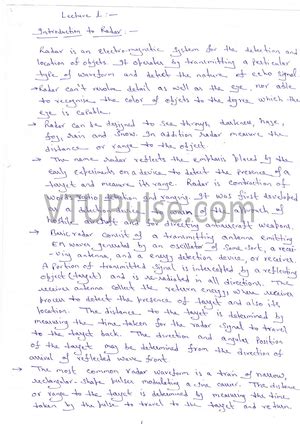 Lecture 1 :-
Introduction to Radar :-
Radar is an electromagnetic system for the detection and
location of objects. It operates by transmitting a particular
type of waveform and detect the nature of echo signal
→ Radar can't resolve detail as well as the eye, nor able
to recognise the color of objects to the degree which the
eye is capable.
→ Radar can be designed to see through darkness, haze,
fog, rain and snow. In addition radar measure the
distance or range to the object.
→ The name radar reflects the emphasis placed by the
early experiments on a device to detect the presence of a
target and measure its range. Radar is contraction of
detection and ranging. It was first developed
VTUPulse.com
aircraft and for directing antiaircraft weapons.
Basic radar consist of a transmitting antenna emitting
EM waves generated by an oscillator of some sort, a recei-
ving antenna, and a energy detection device, or receiver.
A portion of transmitted signal is intercepted by a reflecting
object (target) and is re-radiated in all directions. The
receiver antenna collect the return energy where receiver
process to detect the presence of target and also its
location. The distance to the target is determined by
measuring the time taken for the radar signal to travel
to the target back. The direction and angular position
of the target may be determined from the direction of
arrival of reflected wave front.
→ The most common radar waveform is a train of narrow,
rectangular shape pulses modulating a sine carrier. The distance
or range to the target is determined by measuring the time
taken by the pulse to travel to the target and return